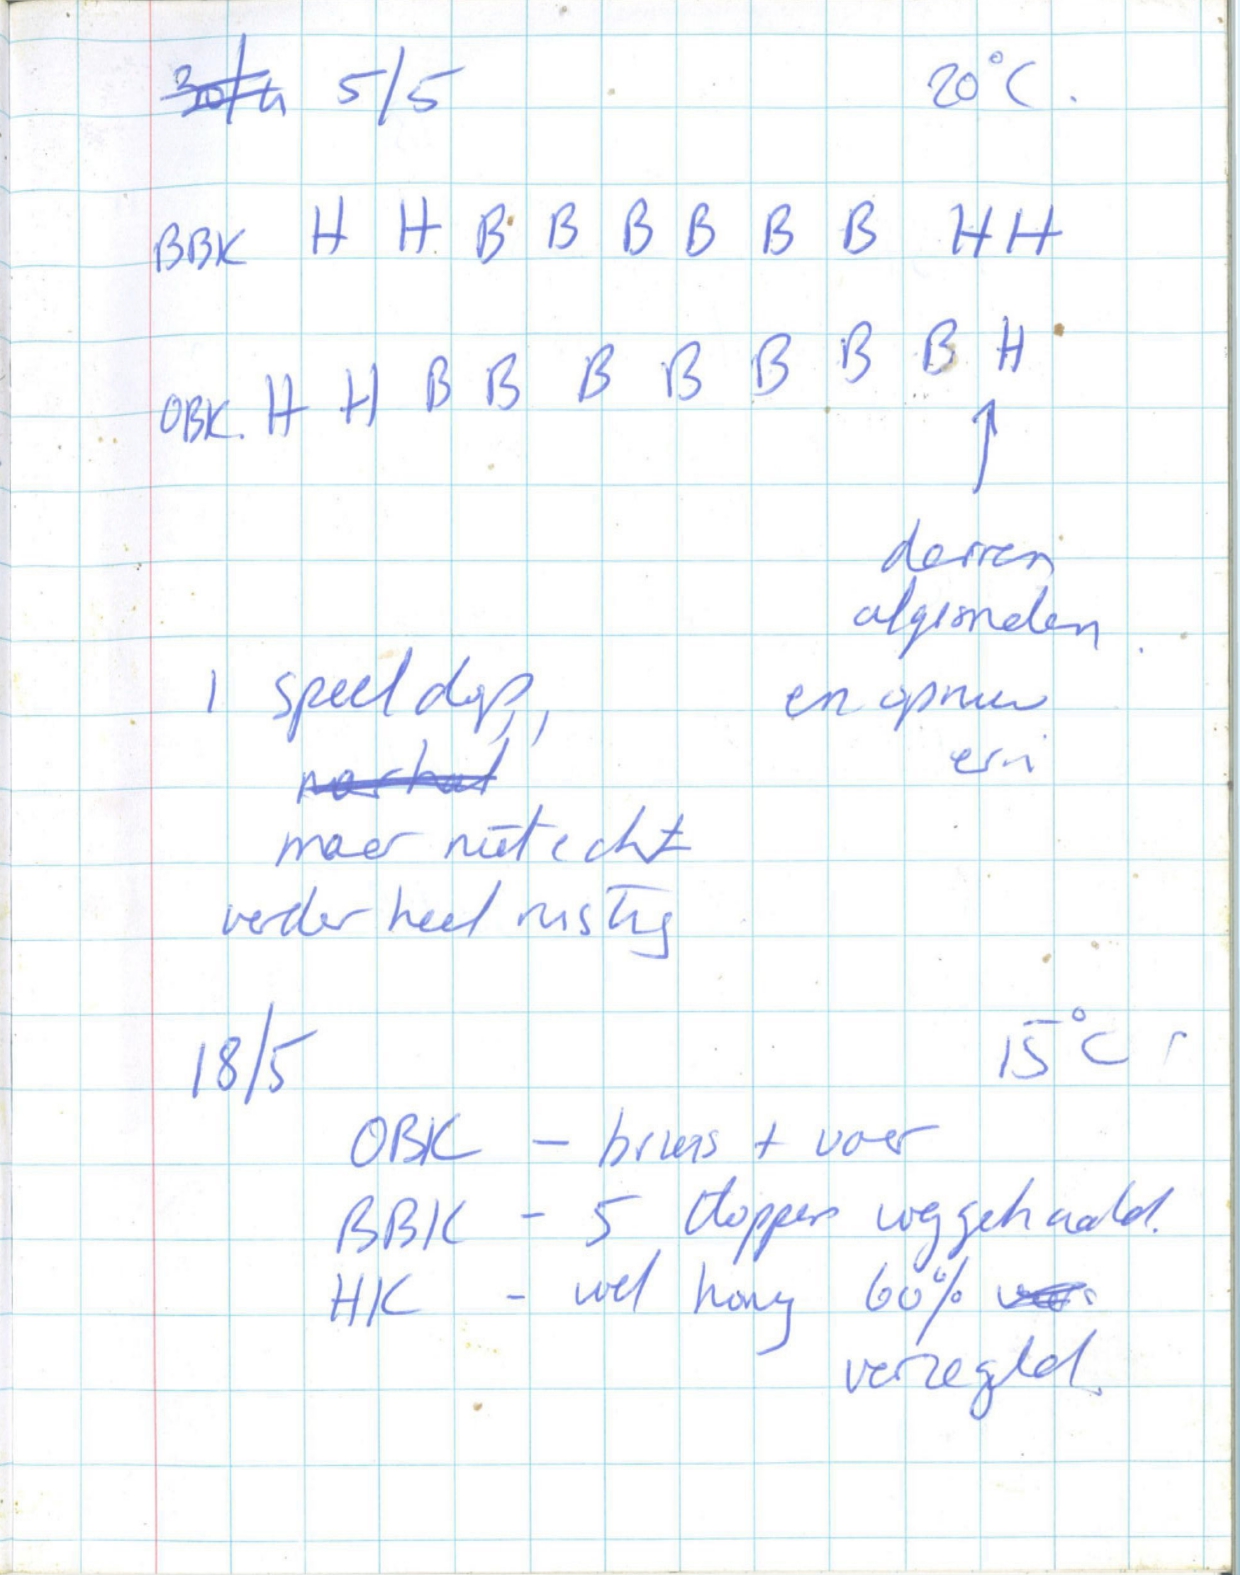 30/4 5/5 20°C.
BBK H H B B B B B B H H
OBK. H H B B B B B B B H
↑
darren
afgesneden
1 speeldop, en opnieuw
erin
maar niet echt
verder heel rustig
18/5 15°C
OBK - broes + voer
BBK - 5 doppen weggehaald.
HK - wel honing 60%
verzegeld.